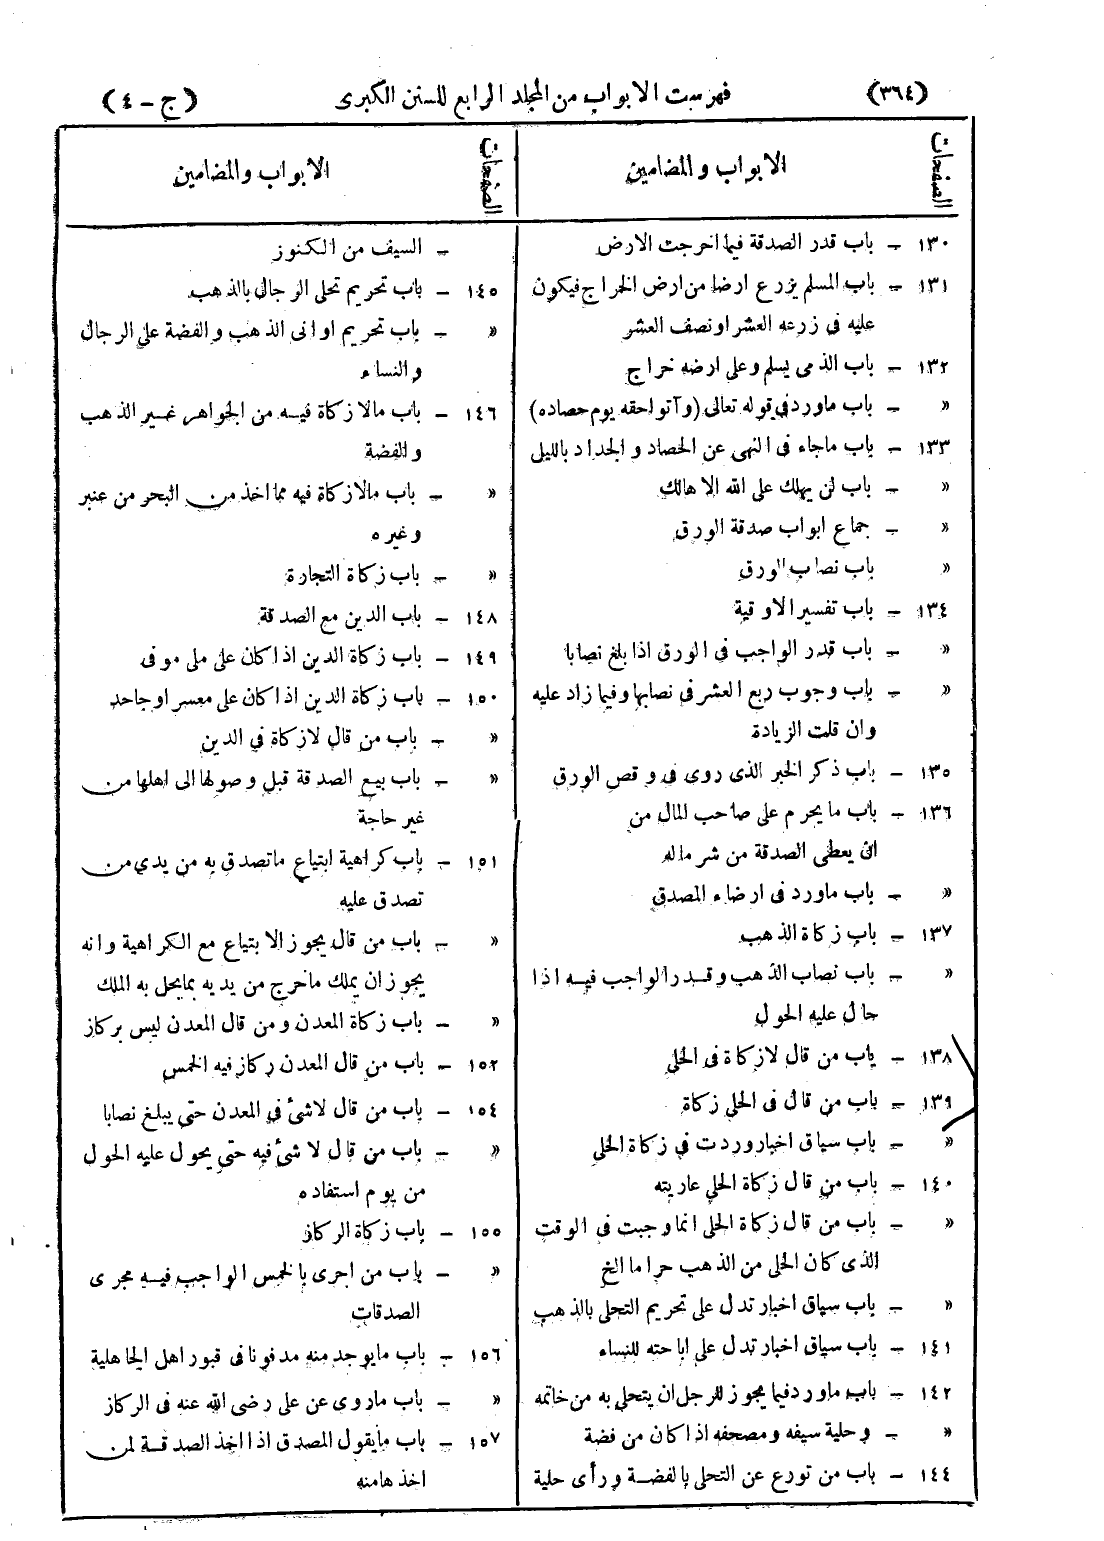 (٣٦٤) فهرست الابواب من المجلد الرابع للسنن الكبرى (ج - ٤)
الصفحات الابواب والمضامين
١٣٠ - باب قدر الصدقة فيما اخرجت الارض
١٣١ - باب المسلم يزرع ارضا من ارض الخراج فيكون
عليه فى زرعه العشر او نصف العشر
١٣٢ - باب الذمى يسلم وعلى ارضه خراج
« - باب ماورد فى قوله تعالى (وآتوا حقه يوم حصاده)
١٣٣ - باب ماجاء فى النهى عن الحصاد والجداد بالليل
« - باب لن يهلك على الله الا هالك
« - جماع ابواب صدقة الورق
« باب نصاب الورق
١٣٤ - باب تفسير الاوقية
« - باب قدر الواجب فى الورق اذا بلغ نصابا
« - باب وجوب ربع العشر فى نصابها وفيما زاد عليه
وان قلت الزيادة
١٣٥ - باب ذكر الخبر الذى روى فى وقص الورق
١٣٦ - باب مايحرم على صاحب المال من
ان يعطى الصدقة من شر ماله
« - باب ماورد فى ارضاء المصدق
١٣٧ - باب زكاة الذهب
« - باب نصاب الذهب وقدر الواجب فيه اذا
حال عليه الحول
١٣٨ - باب من قال لازكاة فى الحلى
١٣٩ - باب من قال فى الحلى زكاة
« - باب سياق اخبار وردت فى زكاة الحلى
١٤٠ - باب من قال زكاة الحلى عاريته
« - باب من قال زكاة الحلى انما وجبت فى الوقت
الذى كان الحلى من الذهب حراما الخ
« - باب سياق اخبار تدل على تحريم التحلى بالذهب
١٤١ - باب سياق اخبار تدل على اباحته للنساء
١٤٢ - باب ماورد فيما يجوز للرجل ان يتحلى به من خاتمه
« - وحلية سيفه ومصحفه اذا كان من فضة
١٤٤ - باب من تورع عن التحلى بالفضة ورأى حلية
الصفحات الابواب والمضامين
- السيف من الكنوز
١٤٥ - باب تحريم تحلى الرجال بالذهب
« - باب تحريم اوانى الذهب والفضة على الرجال
والنساء
١٤٦ - باب مالا زكاة فيه من الجواهر غير الذهب
والفضة
« - باب مالازكاة فيه مما اخذ من البحر من عنبر
وغيره
« - باب زكاة التجارة
١٤٨ - باب الدين مع الصدقة
١٤٩ - باب زكاة الدين اذا كان على ملى موفى
١٥٠ - باب زكاة الدين اذا كان على معسر او جاحد
« - باب من قال لازكاة فى الدين
« - باب بيع الصدقة قبل وصولها الى اهلها من
غير حاجة
١٥١ - باب كراهية ابتياع ماتصدق به من يدى من
تصدق عليه
« - باب من قال يجوز الابتياع مع الكراهية وانه
يجوز ان يملك ماخرج من يديه بمايحل به الملك
« - باب زكاة المعدن ومن قال المعدن ليس بركاز
١٥٢ - باب من قال المعدن ركاز فيه الخمس
١٥٤ - باب من قال لاشئ فى المعدن حتى يبلغ نصابا
« - باب من قال لا شئ فيه حتى يحول عليه الحول
من يوم استفاده
١٥٥ - باب زكاة الركاز
« - باب من اجرى بالخمس الواجب فيه مجرى
الصدقات
١٥٦ - باب مايوجد منه مدفونا فى قبور اهل الجاهلية
« - باب ماروى عن على رضى الله عنه فى الركاز
١٥٧ - باب مايقول المصدق اذا اخذ الصدقة لمن
اخذها منه